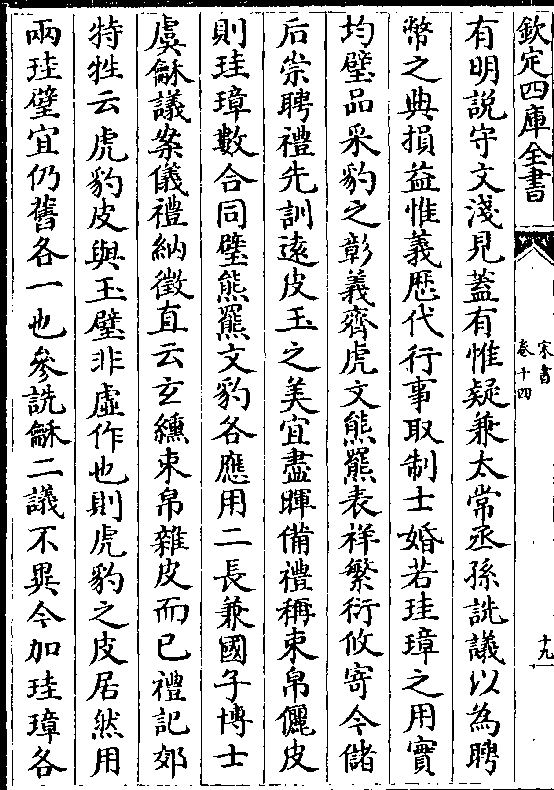 欽定四庫全書
宋書
卷十四
十九
有明說守文淺見蓋有惟疑兼太常丞孫詵議以為聘
幣之典損益惟義歷代行事取制士婚若珪璋之用實
均璧品采豹之彰義齊虎文熊羆表祥繁衍攸寄今儲
后崇聘禮先訓遠皮玉之美宜盡暉備禮稱束帛儷皮
則珪璋數合同璧熊羆文豹各應用二長兼國子博士
虞龢議案儀禮納徵直云玄纁束帛雜皮而已禮記郊
特牲云虎豹皮與玉璧非虛作也則虎豹之皮居然用
兩珪璧宜仍舊各一也參詵龢二議不異今加珪璋各